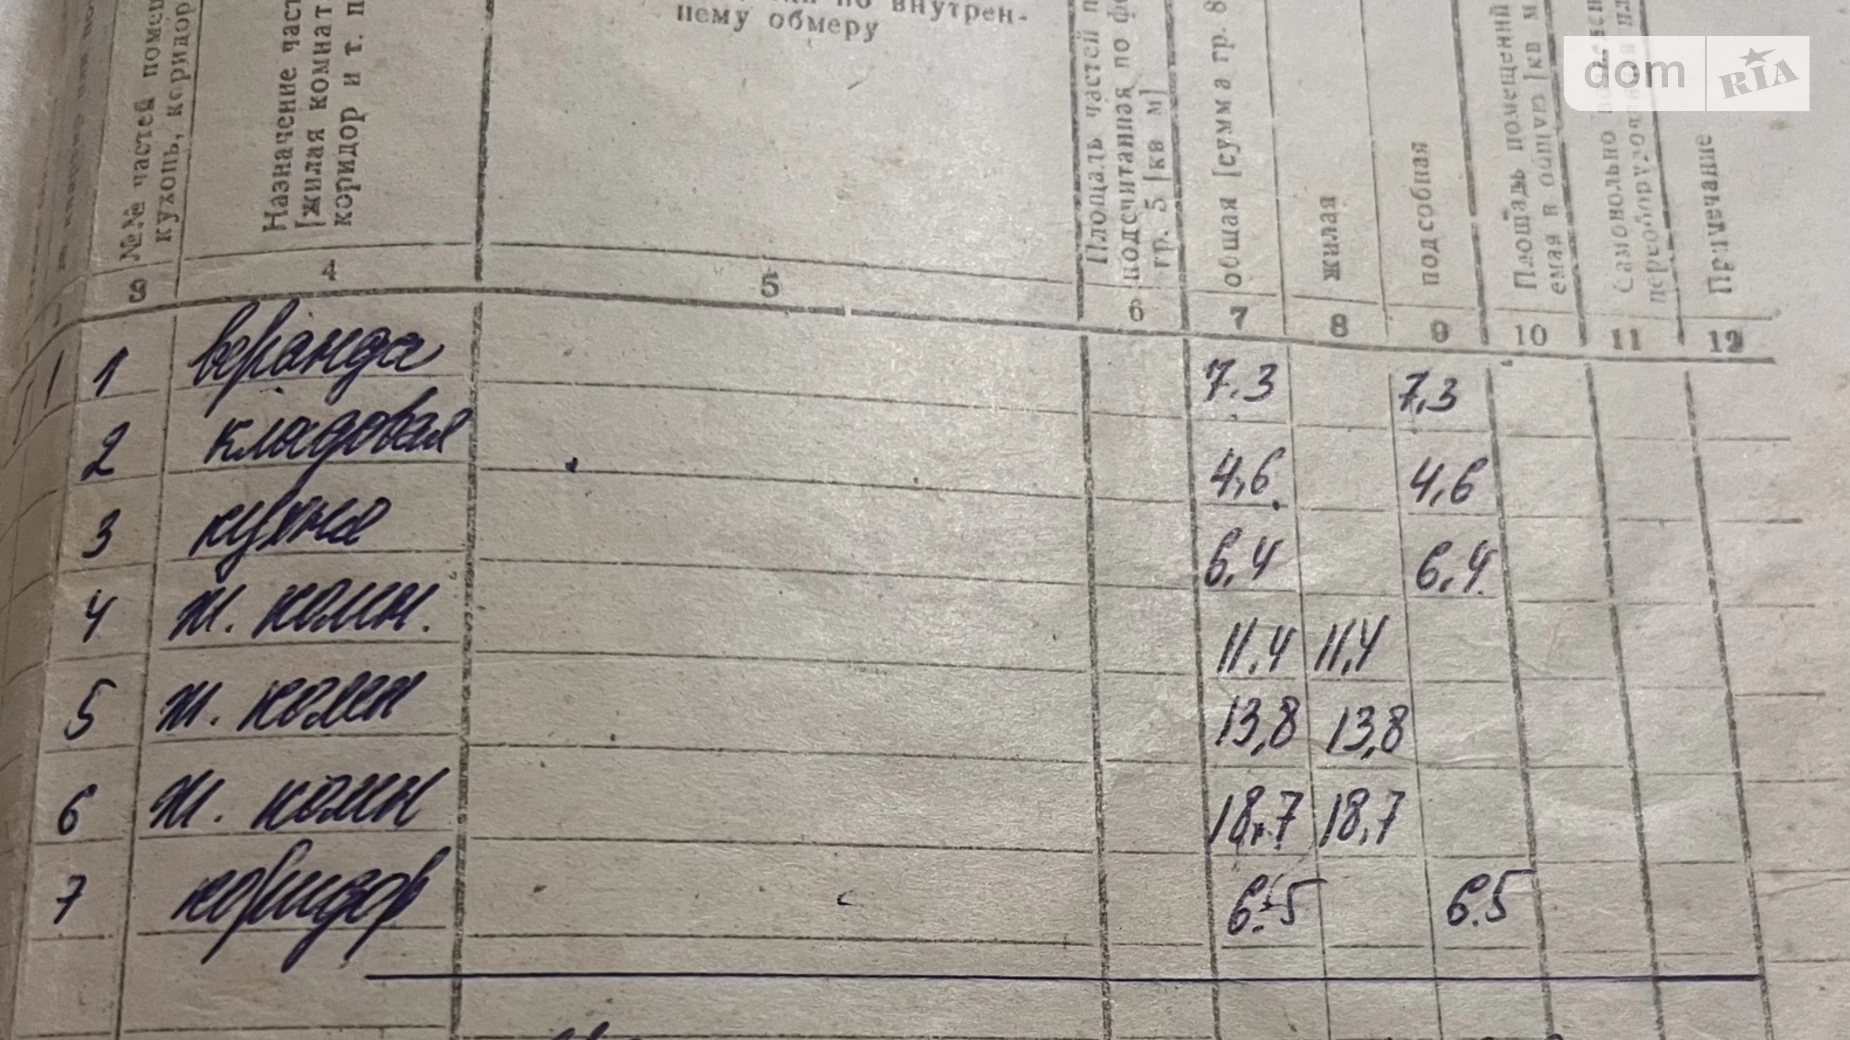 внутрен-
нему обмеру
№№ частей помещ
кухонь, коридор
Назначение част
[жилая комнат
коридор и т. п
Площадь частей п
подсчитанная по фо
гр. 5 [кв м]
общая [сумма гр. 8
жилая
подсобная
Площадь помещений
емая в общую [кв м
Самовольно
переоборудо
Примечание
dom RIA
3 4 5 6 7 8 9 10 11 12
1 веранда 7.3 7,3
2 кладовая 4,6 4,6
3 кухня 6,4 6,4
4 ж. комн. 11,4 11,4
5 ж. комн 13,8 13,8
6 ж. комн 18,7 18,7
7 коридор 6.5 6.5